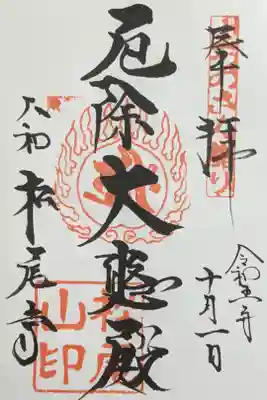 奉拝
令和五年
十月一日
厄除大悲殿
大和 松尾寺
山印